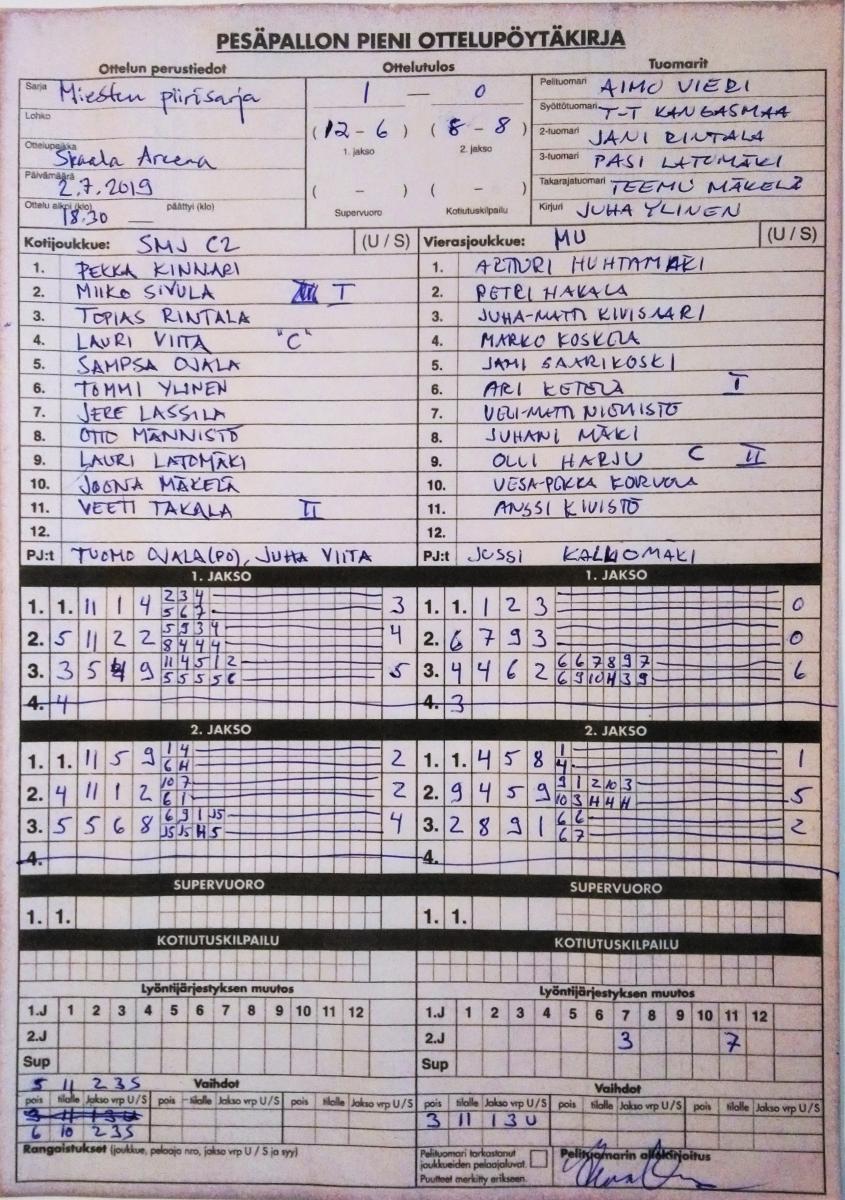 PESÄPALLON PIENI OTTELUPÖYTÄKIRJA
Ottelun perustiedot Ottelutulos Tuomarit
Sarja Miesten piirisarja
Lohko
Ottelupaikka Skaala Areena
Päivämäärä 2.7.2019
Ottelu alkoi (klo) 18.30 — päättyi (klo)
1 — 0
(12-6) (8-8)
1. jakso 2. jakso
( - ) ( - )
Supervuoro Kotiutuskilpailu
Pelituomari AIMO VIERI
Syöttötuomari T-T KANGASMAA
2-tuomari JANI RINTALA
3-tuomari PASI LATOMÄKI
Takarajatuomari TEEMU MÄKELÄ
Kirjuri JUHA YLINEN
Kotijoukkue: SMJ C2 (U / S)
1. PEKKA KINNARI
2. MIIKO SIVULA I
3. TOPIAS RINTALA
4. LAURI VIITA "C"
5. SAMPSA OJALA
6. TOMMI YLINEN
7. JERE LASSILA
8. OTTO MÄNNISTÖ
9. LAURI LATOMÄKI
10. JOONA MÄKELÄ
11. VEETI TAKALA II
12.
PJ:t TUOMO OJALA(PO), JUHA VIITA
Vierasjoukkue: MU (U / S)
1. ARTTURI HUHTAMÄKI
2. PETRI HAKALA
3. JUHA-MATTI KIVISAARI
4. MARKO KOSKELA
5. JAMI SAARIKOSKI
6. ARI KETOLA I
7. VELI-MATTI NIEMISTÖ
8. JUHANI MÄKI
9. OLLI HARJU C II
10. VESA-PEKKA KORVOLA
11. ANSSI KIVISTÖ
12.
PJ:t JUSSI KALLIOMÄKI
1. JAKSO
1. 1. 11 1 4 2 3 4 3
5 6 7
2. 5 11 2 2 5 9 3 4 4
8 4 4 4
3. 3 5 4 9 11 4 5 1 2 5
5 5 5 5 6
4. 4
1. JAKSO
1. 1. 1 2 3 0
2. 6 7 9 3 0
3. 4 4 6 2 6 6 7 8 9 7 6
6 9 10 H 3 9
4. 3
2. JAKSO
1. 1. 11 5 9 1 4 2
6 H
2. 4 11 1 2 10 7 2
6 1
3. 5 5 6 8 6 9 1 J5 4
J5 J5 H 5
4.
2. JAKSO
1. 1. 4 5 8 1 1
4
2. 9 4 5 9 9 1 2 10 3 5
10 3 H 4 H
3. 2 8 9 1 6 6 2
6 7
4.
SUPERVUORO SUPERVUORO
1. 1. 1. 1.
KOTIUTUSKILPAILU KOTIUTUSKILPAILU
Lyöntijärjestyksen muutos
1.J 1 2 3 4 5 6 7 8 9 10 11 12
2.J
Sup
Lyöntijärjestyksen muutos
1.J 1 2 3 4 5 6 7 8 9 10 11 12
2.J 3 7
Sup
5 11 2 3 S Vaihdot
pois tilalle Jakso vrp U/S pois tilalle Jakso vrp U/S pois tilalle Jakso vrp U/S
3 11 1 3 U
6 10 2 3 S
Vaihdot
pois tilalle Jakso vrp U/S pois tilalle Jakso vrp U/S pois tilalle Jakso vrp U/S
3 11 1 3 U
Rangaistukset (joukkue, pelaaja nro, jakso vrp U / S ja syy)
Pelituomari tarkastanut joukkueiden pelaajaluvat.
Puutteet merkitty erikseen.
Pelituomarin allekirjoitus